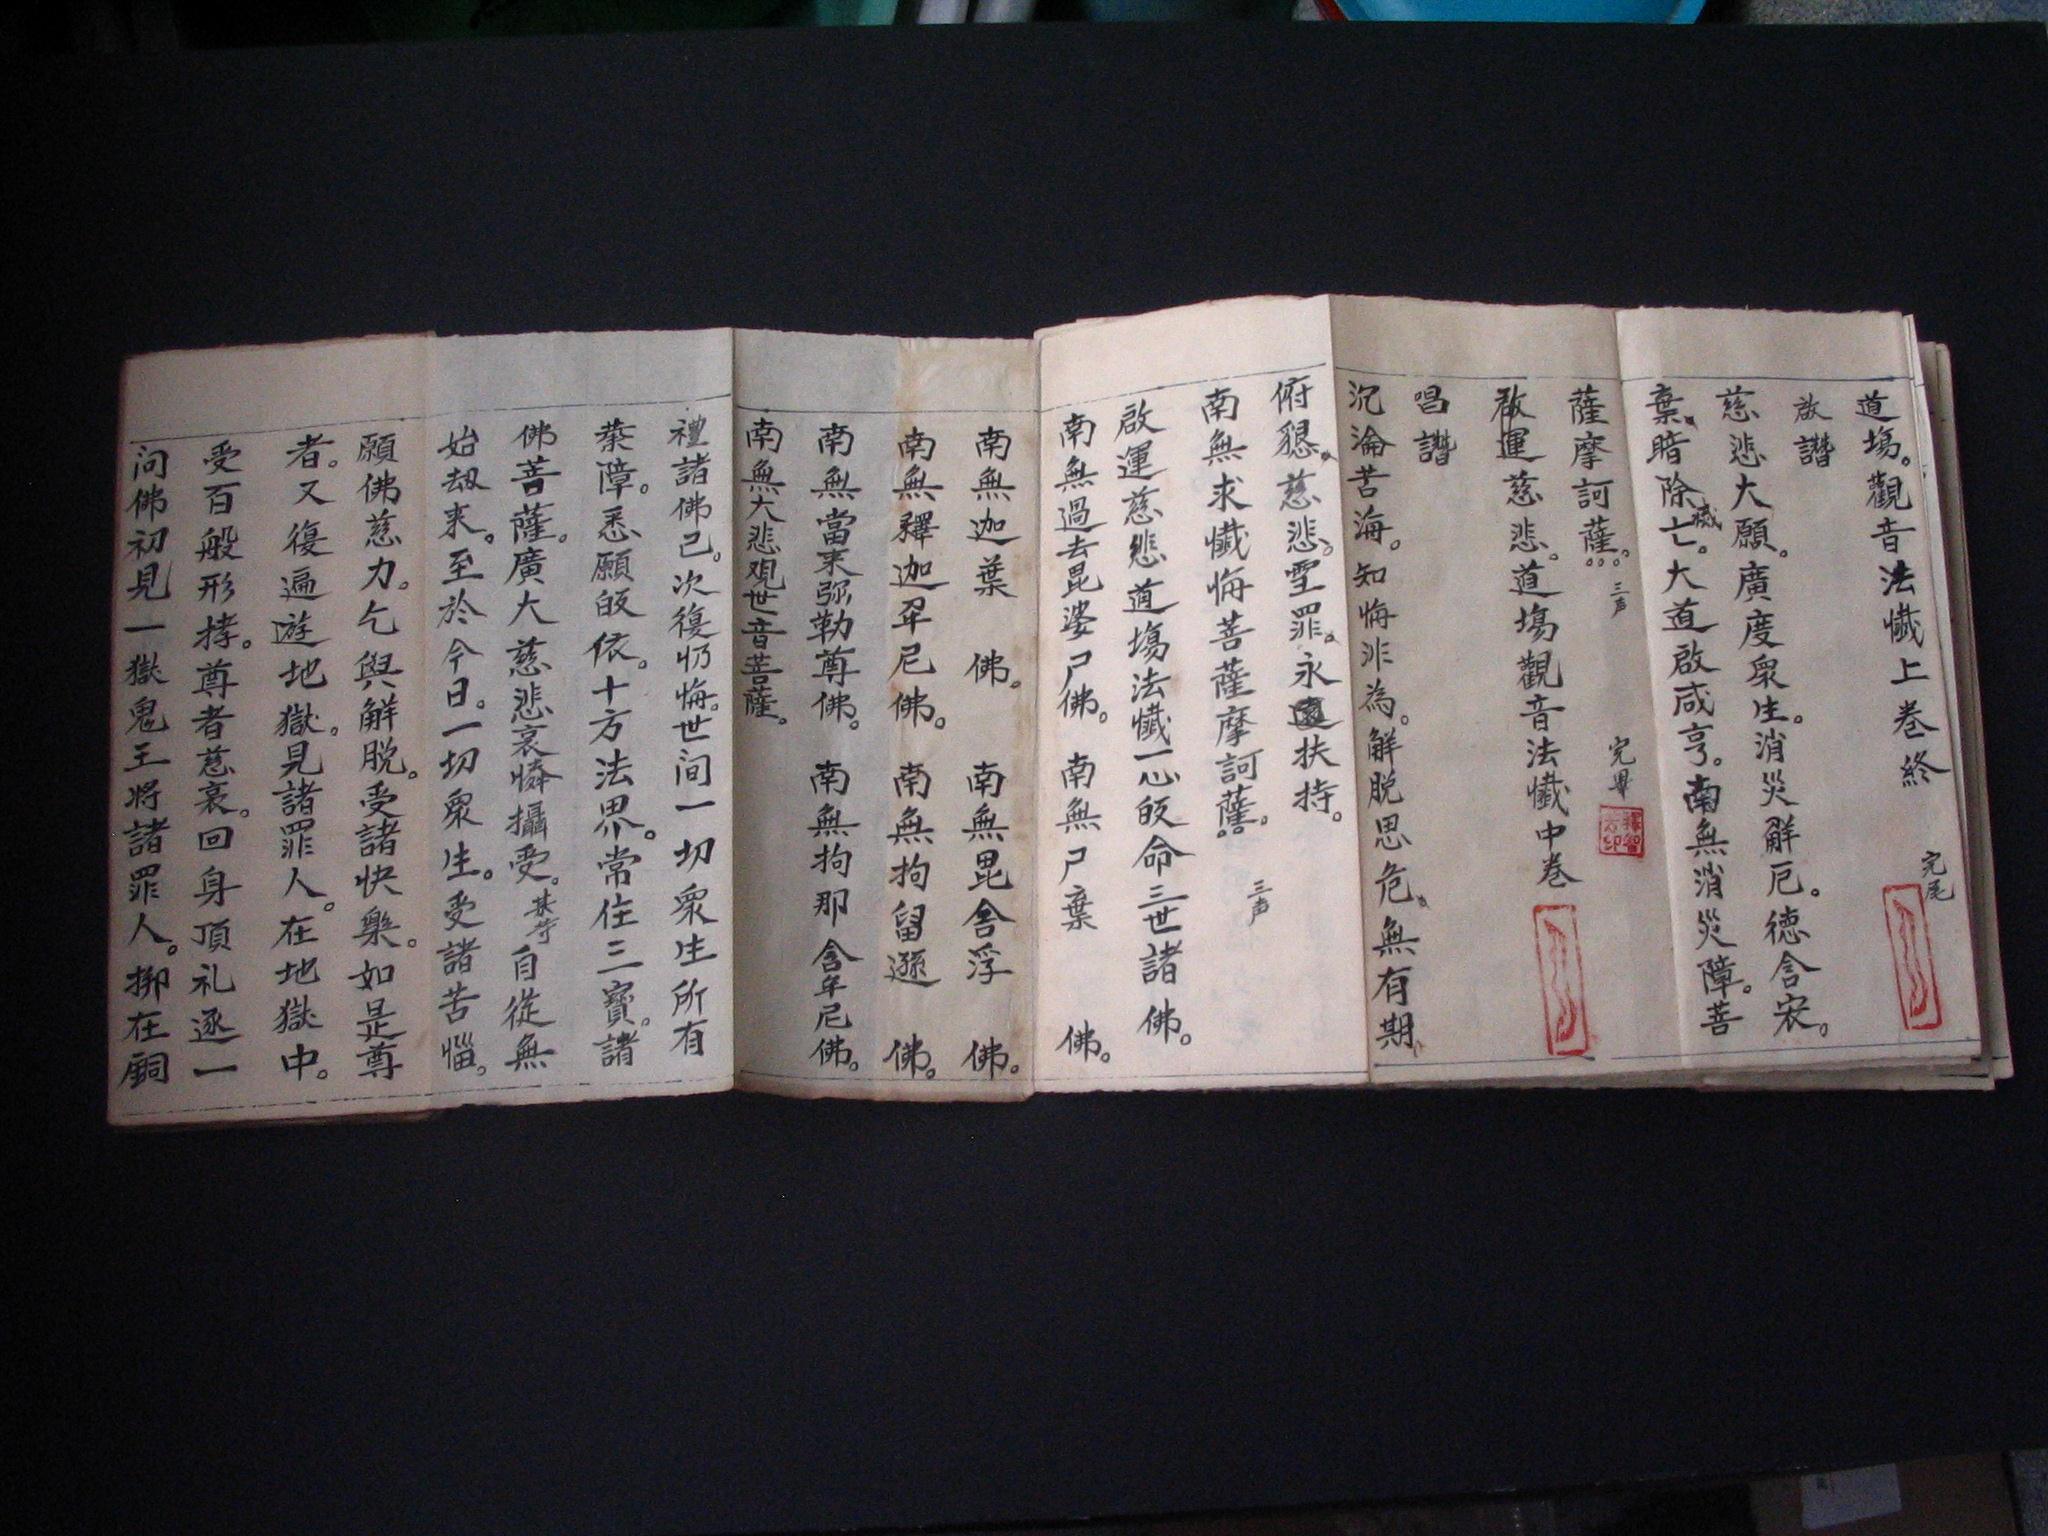 道塲。觀音法懺上卷終
完尾
啟讚
慈悲大願。廣度眾生。消災解厄。德含宏。
棄暗除亡。大道啟咸亨。南無消災障。菩
薩摩訶薩。三声
完畢
啟運慈悲。道塲觀音法懺中卷
唱讚
沉淪苦海。知悔非為。解脫思危。無有期
俯懇。慈悲。雪罪。永遠扶持。
南無求懺悔菩薩摩訶薩。三声
啟運慈悲道塲法懺一心皈命三世諸佛。
南無過去毘婆尸佛。南無尸棄佛。
南無迦葉佛。南無毘舍浮佛。
南無釋迦牟尼佛。南無拘留遜佛。
南無當来弥勒尊佛。南無拘那含牟尼佛。
南無大悲观世音菩薩。
禮諸佛已。次復忏悔。世间一切眾生所有
業障。悉願皈依。十方法界。常住三寶。諸
佛菩薩。廣大慈悲哀憐攝受。某等自從無
始劫来。至於今日。一切眾生。受諸苦惱。
願佛慈力。乞與解脫。受諸快樂。如是尊
者。又復遍遊地獄。見諸罪人。在地獄中。
受百般形拷。尊者慈哀。回身頂礼逐一
问佛初見一獄鬼王将諸罪人。挷在銅